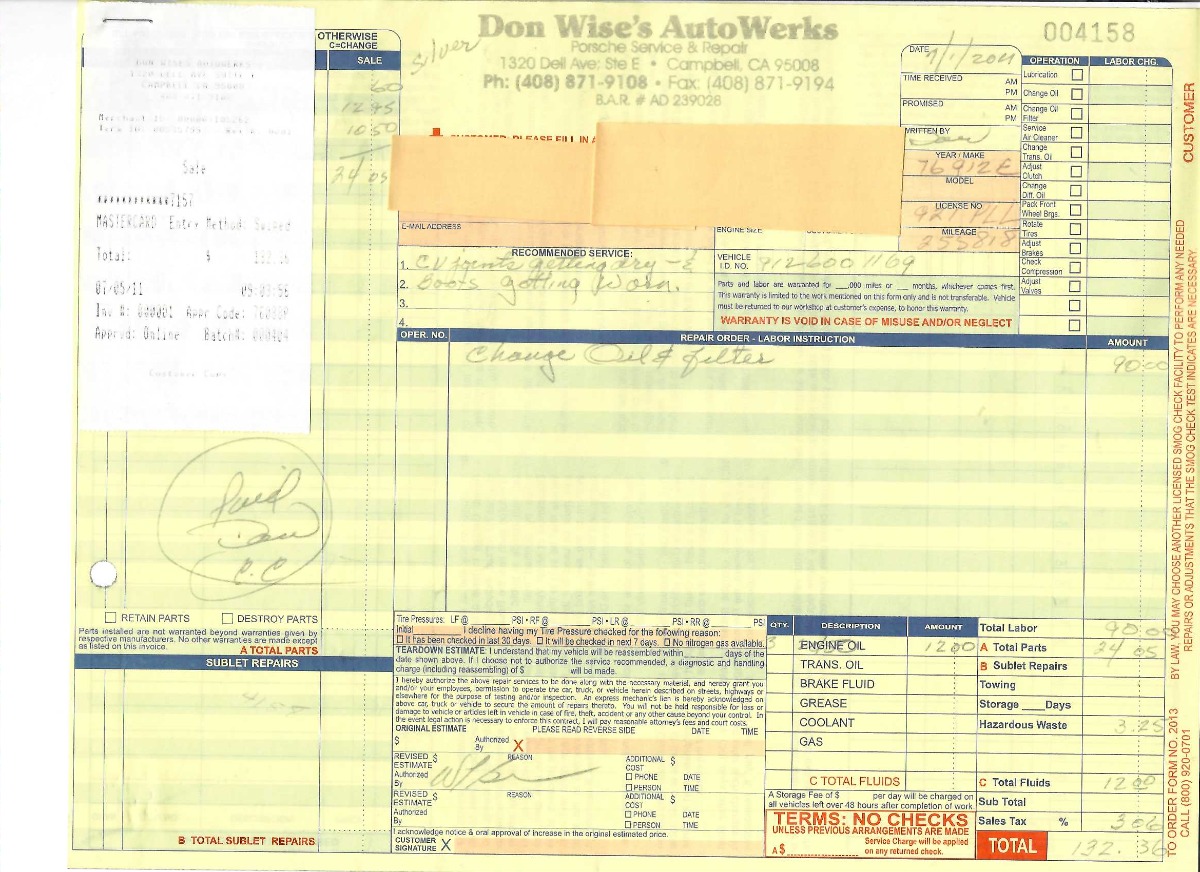 OTHERWISE
C=CHANGE
SALE
60
12 95
10 50
24 05
DON WISE'S AUTOWERKS
CAMPBELL CA 95008
Sale
7157
MASTERCARD Entry Method: Swiped
Total: $
07/05/11
Inv #: 000001 Appr Code:
Apprvd: Online Batch#: 000404
Customer Copy
Silver
Don Wise's AutoWerks
Porsche Service & Repair
1320 Dell Ave: Ste E • Campbell, CA 95008
Ph: (408) 871-9108 • Fax: (408) 871-9194
B.A.R. # AD 239028
004158
DATE 7/1/2011
TIME RECEIVED AM
PM
PROMISED AM
PM
WRITTEN BY
Dan
YEAR / MAKE
76 912E
MODEL
LICENSE NO
MILEAGE
255818
OPERATION LABOR CHG.
Lubrication
Change Oil
Change Oil Filter
Service Air Cleaner
Change Trans. Oil
Adjust Clutch
Change Diff. Oil
Pack Front Wheel Brgs.
Rotate Tires
Adjust Brakes
Check Compression
Adjust Valves
CUSTOMER
E-MAIL ADDRESS
ENGINE SIZE
RECOMMENDED SERVICE:
1. CV joints getting dry - &
2. Boots getting worn.
3.
4.
VEHICLE
I.D. NO. 9126001169
Parts and labor are warranted for ___,000 miles or ___ months, whichever comes first.
This warranty is limited to the work mentioned on this form only and is not transferable. Vehicle
must be returned to our workshop at customer's expense, to honor this warranty.
WARRANTY IS VOID IN CASE OF MISUSE AND/OR NEGLECT
OPER. NO. REPAIR ORDER - LABOR INSTRUCTION AMOUNT
Change Oil & filter 90.00
Paid
Dan
C.C
RETAIN PARTS DESTROY PARTS
Parts installed are not warranted beyond warranties given by
respective manufacturers. No other warranties are made except
as listed on this invoice.
A TOTAL PARTS
SUBLET REPAIRS
B TOTAL SUBLET REPAIRS
Tire Pressures: LF @ PSI • RF @ PSI • LR @ PSI • RR @ PSI
Initial I decline having my Tire Pressure checked for the following reason:
It has been checked in last 30 days. It will be checked in next 7 days. No nitrogen gas available.
TEARDOWN ESTIMATE: I understand that my vehicle will be reassembled within days of the
date shown above. If I choose not to authorize the service recommended, a diagnostic and handling
charge (including reassembling) of $ will be made.
I hereby authorize the above repair services to be done along with the necessary material, and hereby grant you
and/or your employees, permission to operate the car, truck, or vehicle herein described on streets, highways or
elsewhere for the purpose of testing and/or inspection. An express mechanic's lien is hereby acknowledged on
above car, truck or vehicle to secure the amount of repairs thereto. You will not be held responsible for loss or
damage to vehicle or articles left in vehicle in case of fire, theft, accident or any other cause beyond your control. In
the event legal action is necessary to enforce this contract, I will pay reasonable attorney's fees and court costs.
ORIGINAL ESTIMATE PLEASE READ REVERSE SIDE DATE TIME
$ Authorized By X
REVISED ESTIMATE $ REASON ADDITIONAL COST $
Authorized By PHONE DATE
PERSON TIME
REVISED ESTIMATE $ REASON ADDITIONAL COST $
Authorized By PHONE DATE
PERSON TIME
I acknowledge notice & oral approval of increase in the original estimated price.
CUSTOMER SIGNATURE X
QTY. DESCRIPTION AMOUNT
3 ENGINE OIL 12 00
TRANS. OIL
BRAKE FLUID
GREASE
COOLANT
GAS
C TOTAL FLUIDS
A Storage Fee of $ per day will be charged on
all vehicles left over 48 hours after completion of work.
TERMS: NO CHECKS
UNLESS PREVIOUS ARRANGEMENTS ARE MADE
Service Charge will be applied
A $ on any returned check.
Total Labor 90.00
A Total Parts 24 05
B Sublet Repairs
Towing
Storage ____ Days
Hazardous Waste 3.25
C Total Fluids 12 00
Sub Total
Sales Tax % 3 06
TOTAL 132.36
BY LAW, YOU MAY CHOOSE ANOTHER LICENSED SMOG CHECK FACILITY TO PERFORM ANY NEEDED
REPAIRS OR ADJUSTMENTS THAT THE SMOG CHECK TEST INDICATES ARE NECESSARY.
TO ORDER FORM NO. 2013
CALL (800) 920-0701